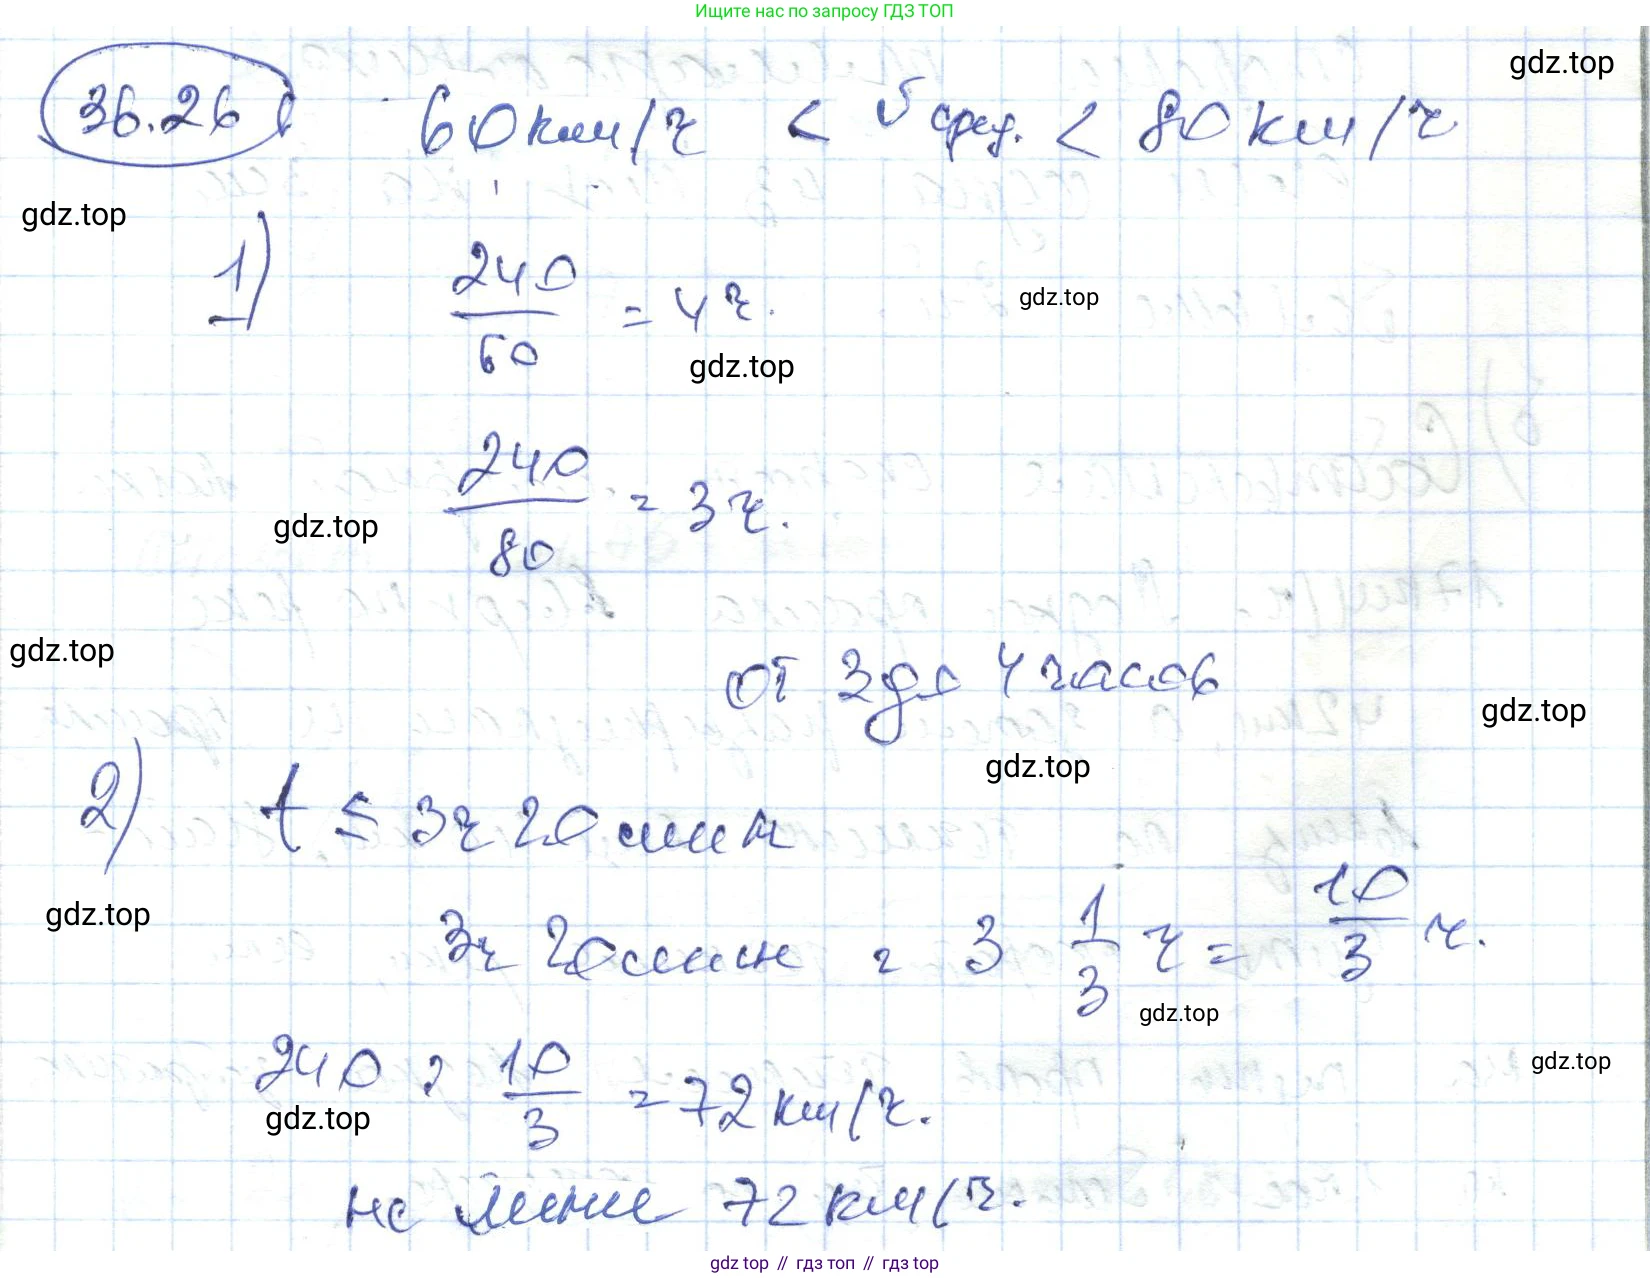 Ищите нас по запросу ГДЗ ТОП
gdz.top
36.26 60 км/ч < υ сред. < 80 км/ч
gdz.top
1) 240/60 = 4 ч.
gdz.top
gdz.top
240/80 = 3 ч.
gdz.top
gdz.top
от 3 до 4 часов
gdz.top
gdz.top
2) t ≤ 3ч 20 мин
gdz.top
3ч 20 мин = 3 1/3 ч = 10/3 ч.
gdz.top
gdz.top
240 : 10/3 = 72 км/ч.
gdz.top
не мене 72 км/ч.
gdz top // гдз топ // gdz top